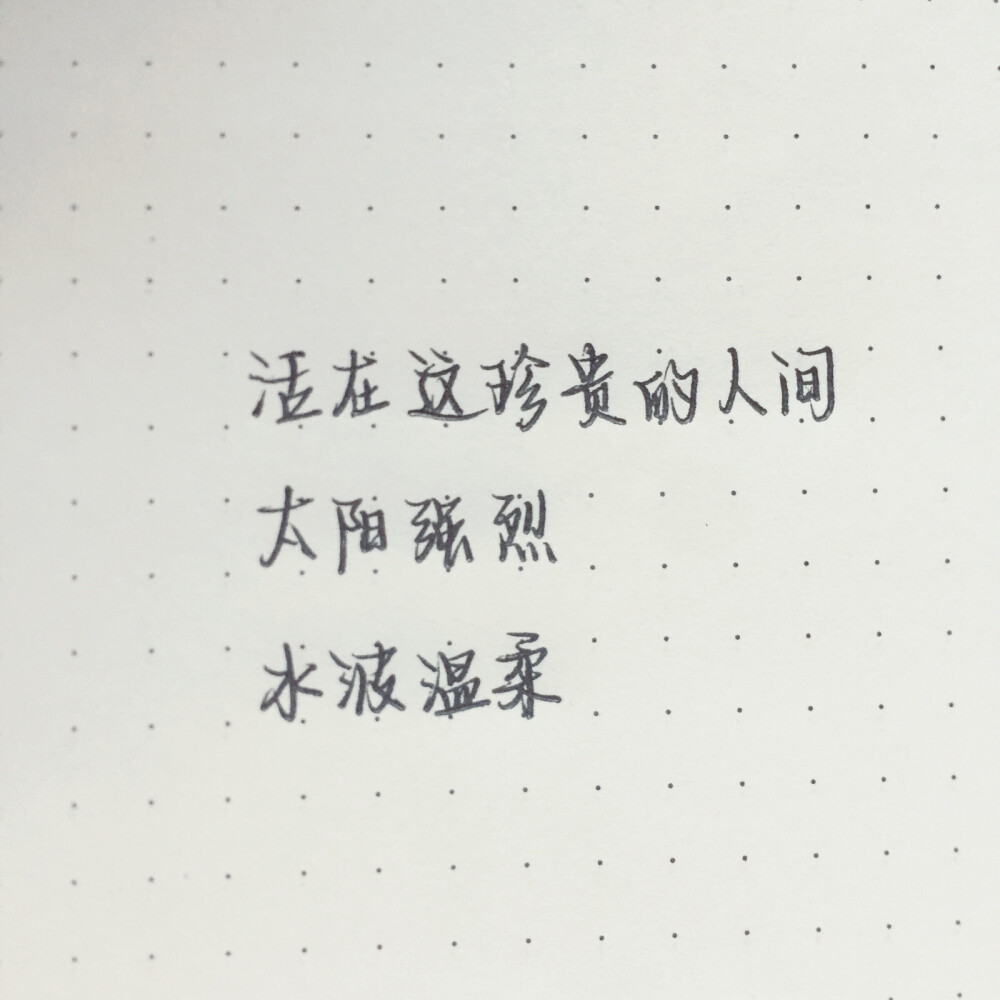 活在这珍贵的人间
太阳强烈
水波温柔